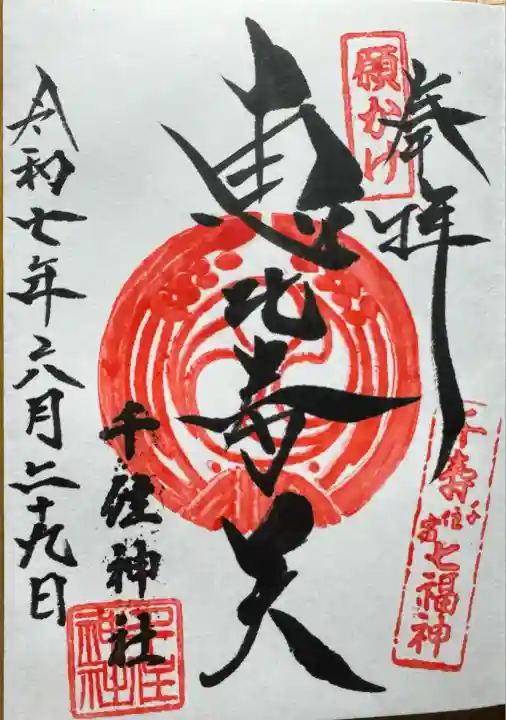 奉拝
願かけ
千寿七福神
千住
恵比寿天
千住神社
千住神社
令和七年六月二十九日